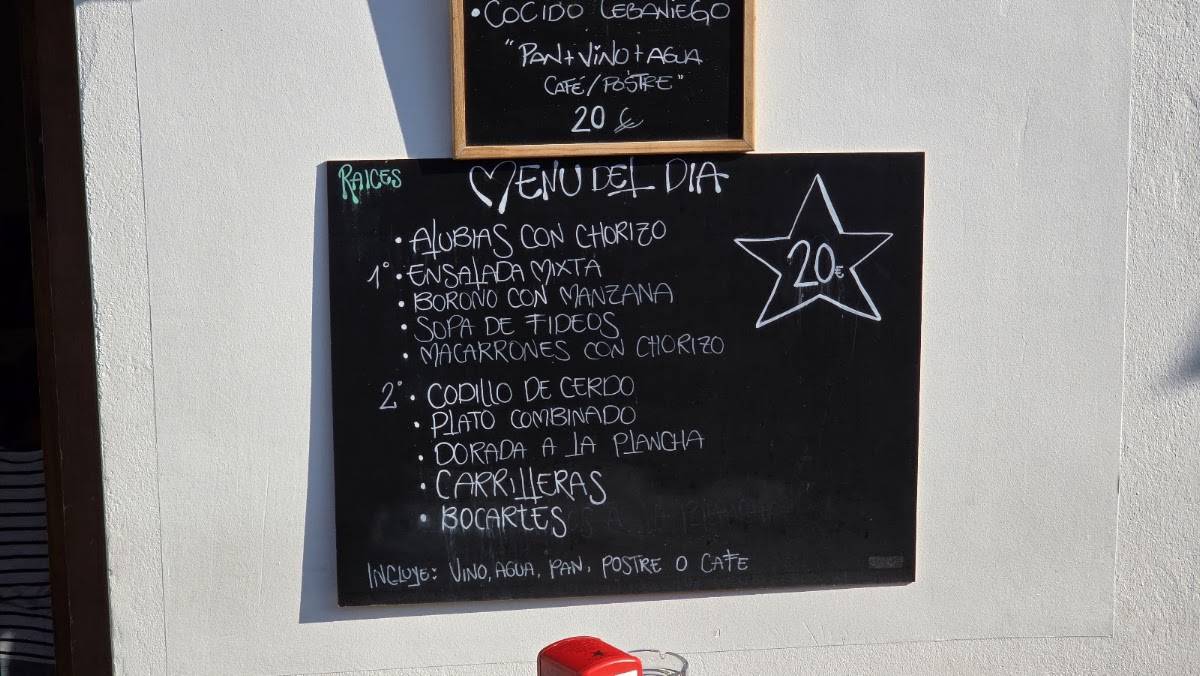 • COCIDO LEBANIEGO
"PAN+VINO+AGUA
CAFÉ/POSTRE"
20 €
RAICES
MENU DEL DIA
• ALUBIAS CON CHORIZO
1° • ENSALADA MIXTA
• BOROÑO CON MANZANA
• SOPA DE FIDEOS
• MACARRONES CON CHORIZO
20€
2° • CODILLO DE CERDO
• PLATO COMBINADO
• DORADA A LA PLANCHA
• CARRILLERAS
• BOCARTES
INCLUYE: VINO, AGUA, PAN, POSTRE O CAFE